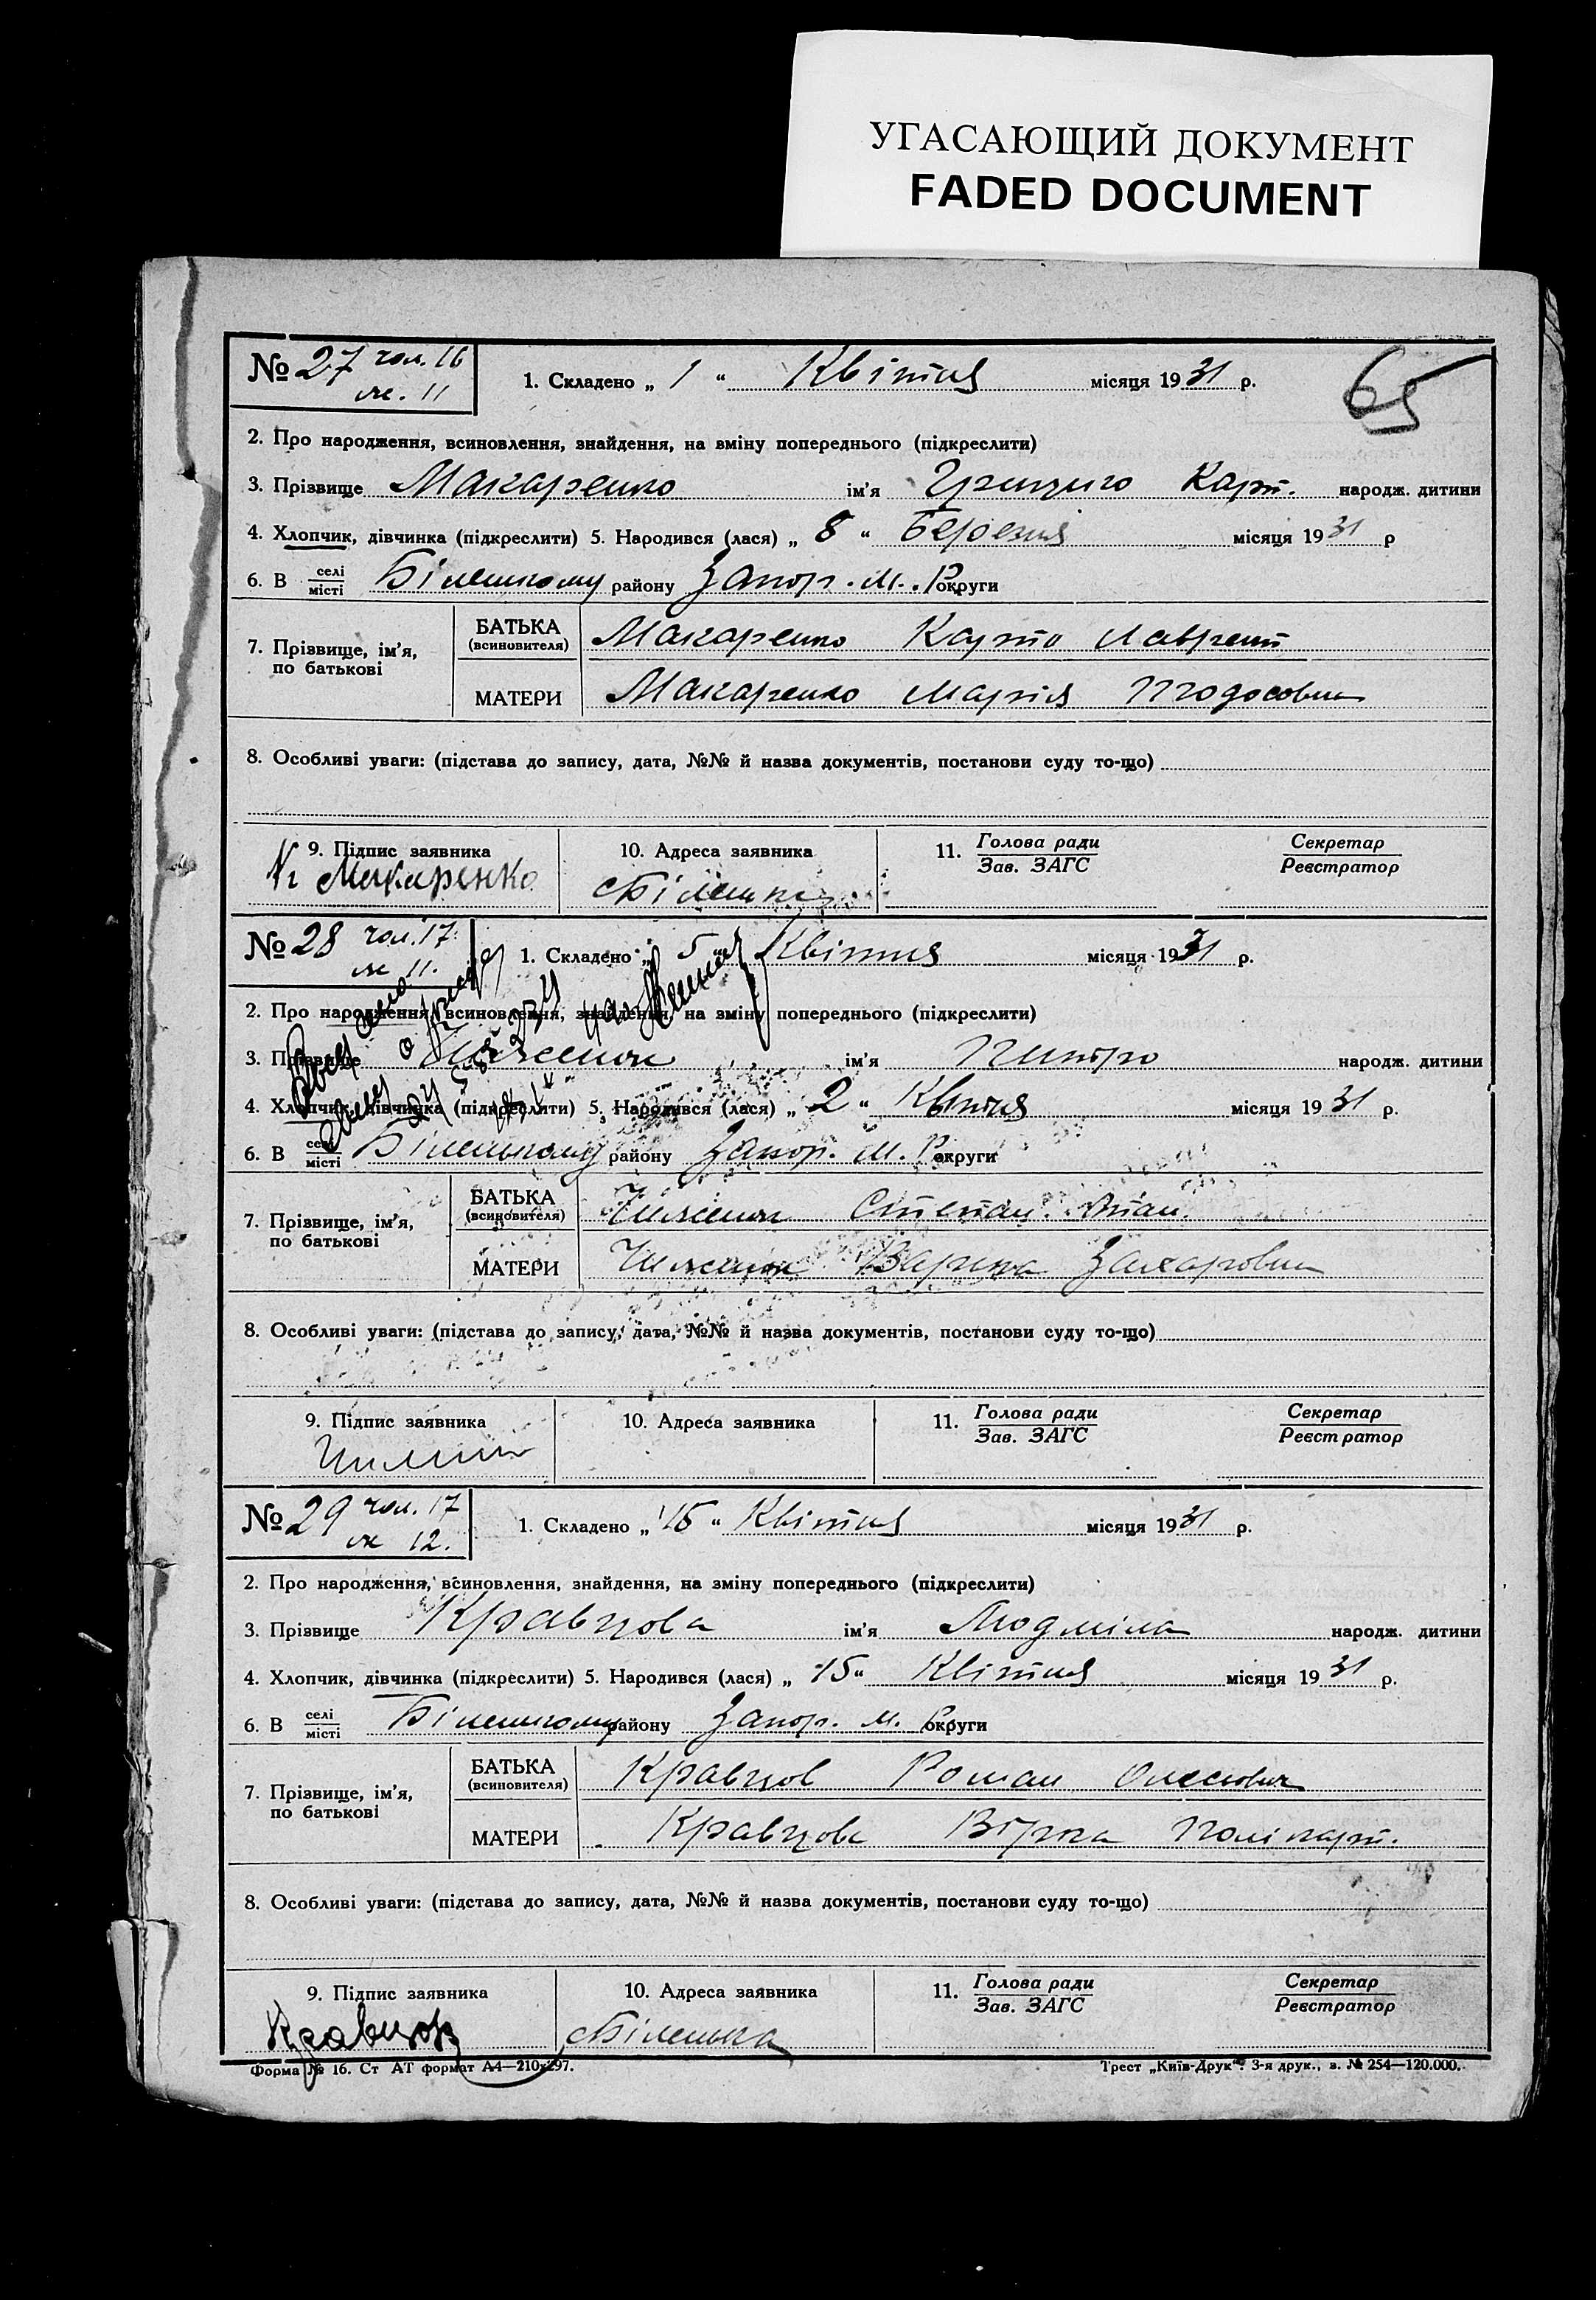 УГАСАЮЩИЙ ДОКУМЕНТ
FADED DOCUMENT
65
№ 27 чол. 16
ж. 11
1. Складено „ 1 “ Квітня місяця 1931 р.
2. Про народження, всиновлення, знайдення, на вміну попереднього (підкреслити)
3. Прізвище Макаренко ім'я Карп. народж. дитини
4. Хлопчик, дівчинка (підкреслити) 5. Народився (лася) „ 8 “ Березня місяця 1931 р
6. В селі/місті району Запор. М. Р. округи
7. Прізвище, ім'я, по батькові
БАТЬКА (всиновителя) Макаренко Карпо Лаврент
МАТЕРИ Макаренко Марія Тодосовна
8. Особливі уваги: (підстава до запису, дата, №№ й назва документів, постанови суду то-що)
9. Підпис заявника
Макаренко
10. Адреса заявника
11. Голова ради
Зав. ЗАГС
Секретар
Реєстратор
№ 28 чол. 17
ж 11.
1. Складено „ 5 “ Квітня місяця 1931 р.
2. Про народження, всиновлення, знайдення, на зміну попереднього (підкреслити)
3. Прізвище ім'я народж. дитини
4. Хлопчик, дівчинка (підкреслити) 5. Народився (лася) „ 2 “ Квітня місяця 1931 р.
6. В селі/місті Біленькому району Запор. М. Р. округи
7. Прізвище, ім'я, по батькові
БАТЬКА (всиновителя) Степан
МАТЕРИ Захаровна
8. Особливі уваги: (підстава до запису, дата, №№ й назва документів, постанови суду то-що)
9. Підпис заявника
10. Адреса заявника
11. Голова ради
Зав. ЗАГС
Секретар
Реєстратор
№ 29 чол. 17
ж 12.
1. Складено „ 15 “ Квітня місяця 1931 р.
2. Про народження, всиновлення, знайдення, на зміну попереднього (підкреслити)
3. Прізвище Кравцова ім'я Людміла народж. дитини
4. Хлопчик, дівчинка (підкреслити) 5. Народився (лася) „ 15 “ Квітня місяця 1931 р.
6. В селі/місті Біленькому району Запор. М. Р. округи
7. Прізвище, ім'я, по батькові
БАТЬКА (всиновителя) Кравцов Роман
МАТЕРИ Кравцова Вірка Полікарп.
8. Особливі уваги: (підстава до запису, дата, №№ й назва документів, постанови суду то-що)
9. Підпис заявника
Кравцов
10. Адреса заявника
Біленька
11. Голова ради
Зав. ЗАГС
Секретар
Реєстратор
Форма № 16. Ст АТ формат А4—210х297.
Трест „Київ-Друк“. 3-я друк., з. № 254—120.000.